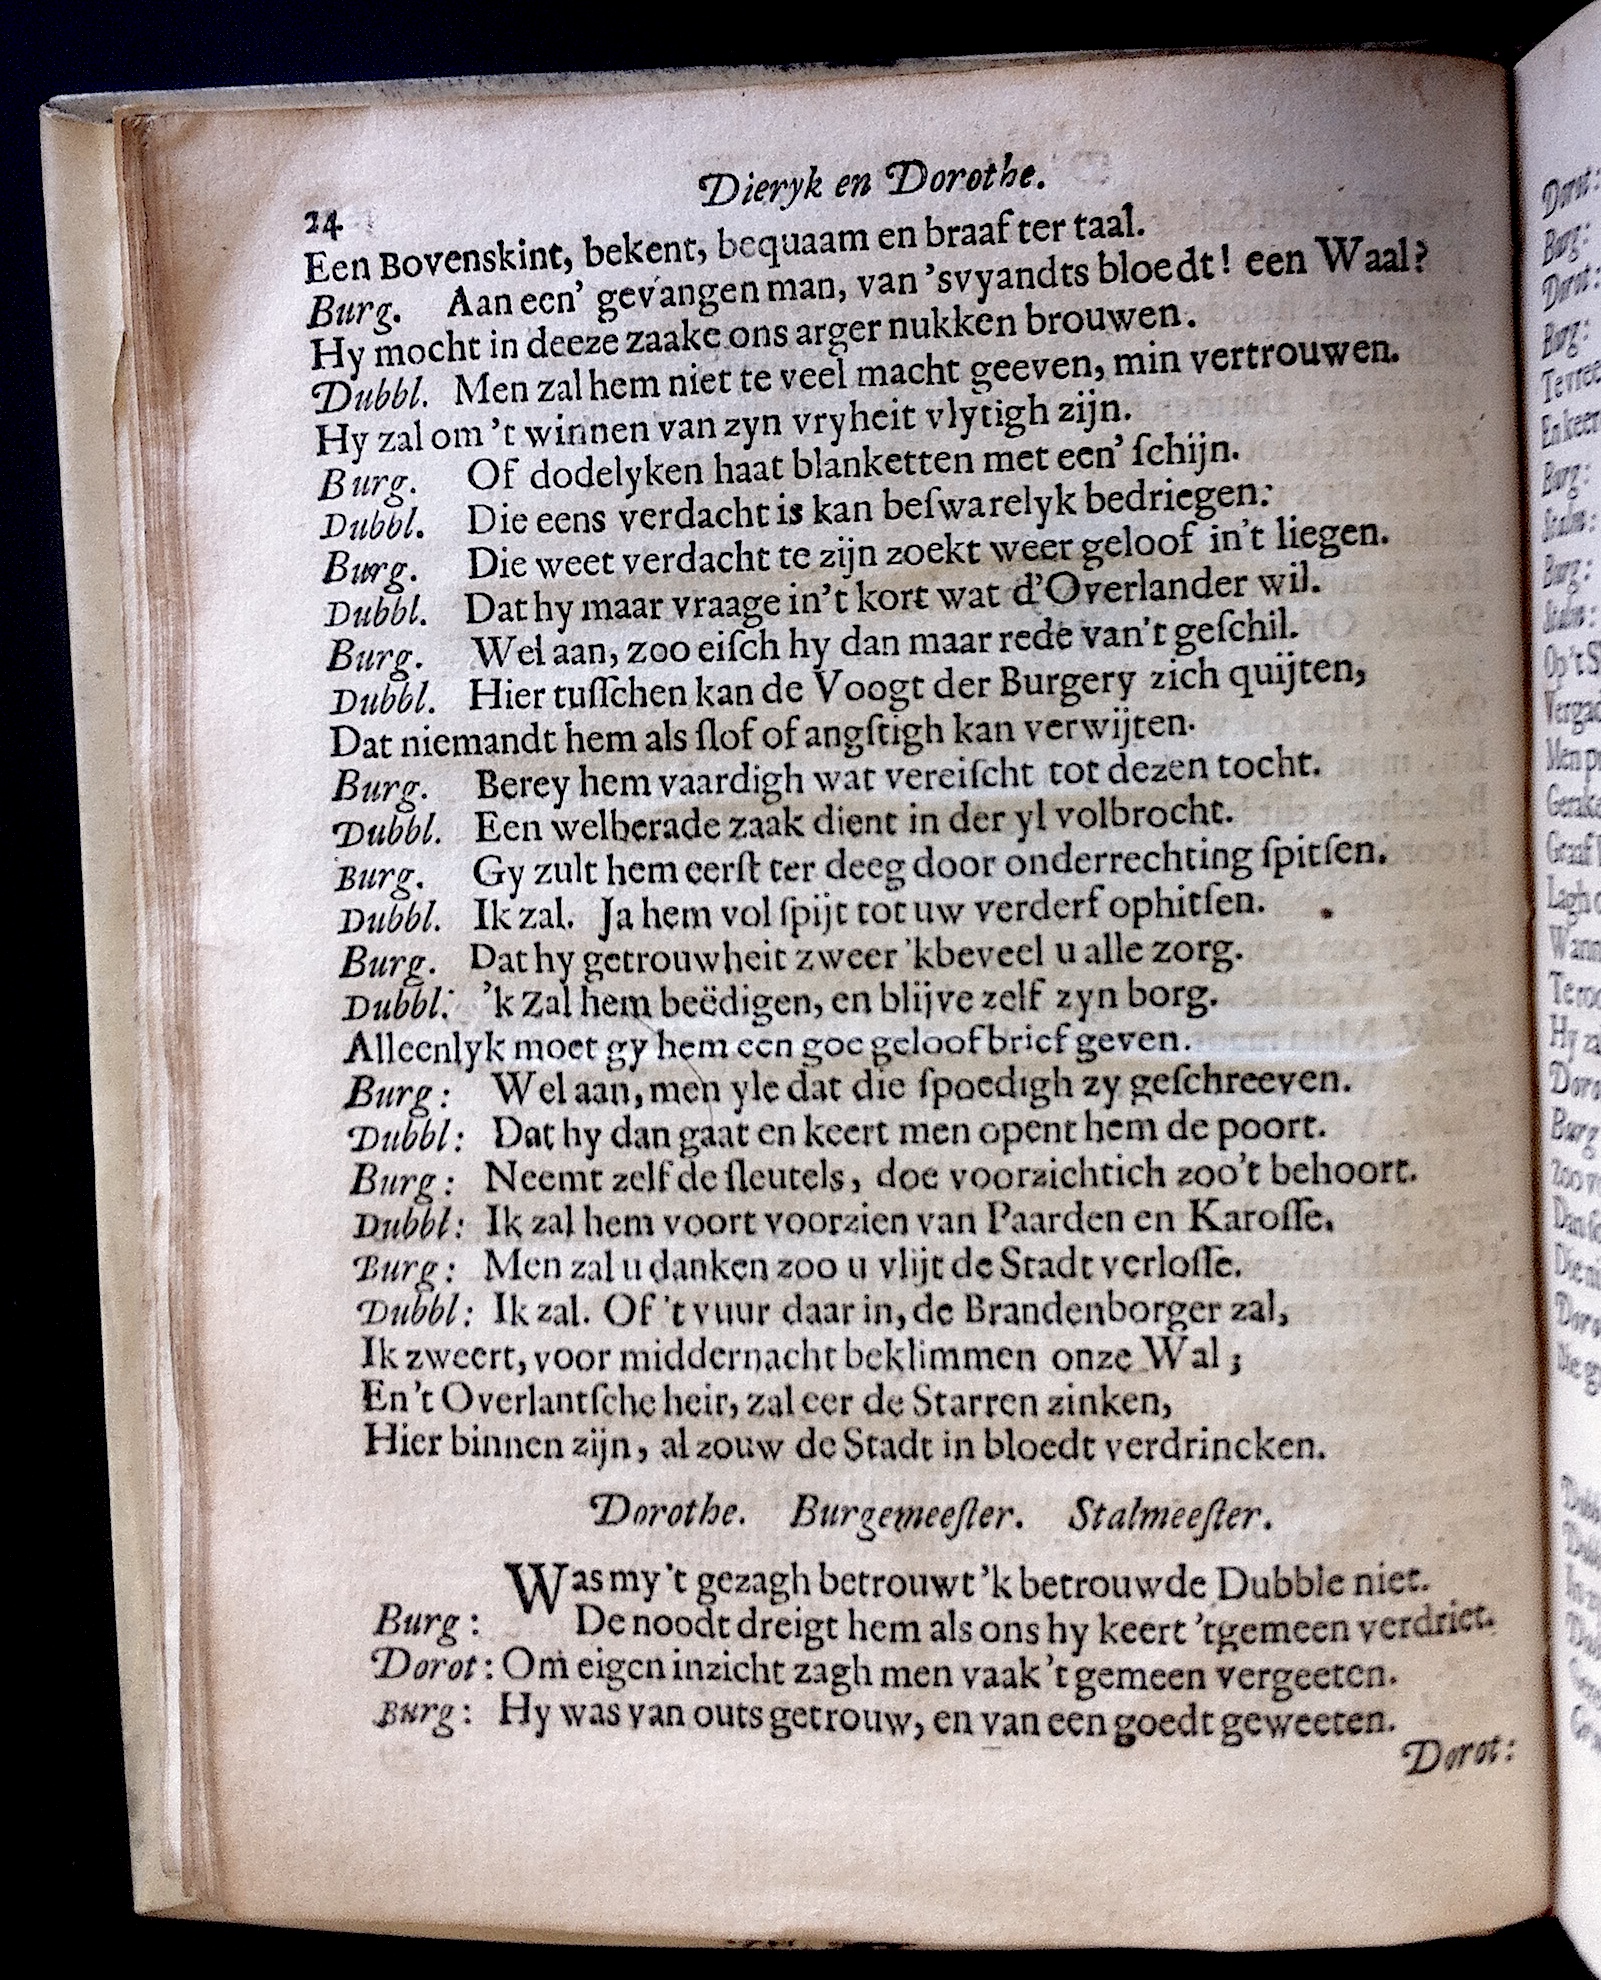 Dieryk en Dorothe.
24
Een Bovenskint, bekent, bequaam en braaf ter taal.
Burg. Aan een' gevangen man, van 'svyandts bloedt! een Waal?
Hy mocht in deeze zaake ons arger nukken brouwen.
Dubbl. Men zal hem niet te veel macht geeven, min vertrouwen.
Hy zal om 't winnen van zyn vryheit vlytigh zijn.
Burg. Of dodelyken haat blanketten met een' ſchijn.
Dubbl. Die eens verdacht is kan beſwarelyk bedriegen.
Burg. Die weet verdacht te zijn zoekt weer geloof in't liegen.
Dubbl. Dat hy maar vraage in't kort wat d'Overlander wil.
Burg. Wel aan, zoo eiſch hy dan maar rede van't geſchil.
Dubbl. Hier tuſſchen kan de Voogt der Burgery zich quijten,
Dat niemandt hem als ſlof of angſtigh kan verwijten.
Burg. Berey hem vaardigh wat vereiſcht tot dezen tocht.
Dubbl. Een welberade zaak dient in der yl volbrocht.
Burg. Gy zult hem eerſt ter deeg door onderrechting ſpitſen.
Dubbl. Ik zal. Ja hem vol ſpijt tot uw verderf ophitſen.
Burg. Dat hy getrouwheit zweer 'kbeveel u alle zorg.
Dubbl. 'k Zal hem beëdigen, en blijve zelf zyn borg.
Alleenlyk moet gy hem een goe geloof brief geven.
Burg: Wel aan, men yle dat die ſpoedigh zy geſchreeven.
Dubbl: Dat hy dan gaat en keert men opent hem de poort.
Burg: Neemt zelf de ſleutels, doe voorzichtich zoo't behoort.
Dubbl: Ik zal hem voort voorzien van Paarden en Karoſſe.
Burg: Men zal u danken zoo u vlijt de Stadt verloſſe.
Dubbl: Ik zal. Of 't vuur daar in, de Brandenborger zal,
Ik zweert, voor middernacht beklimmen onze Wal;
En 't Overlantſche heir, zal eer de Starren zinken,
Hier binnen zijn, al zouw de Stadt in bloedt verdrincken.
Dorothe. Burgemeeſter. Stalmeeſter.
Was my 't gezagh betrouwt 'k betrouwde Dubble niet.
Burg: De noodt dreigt hem als ons hy keert 'tgemeen verdriet.
Dorot: Om eigen inzicht zagh men vaak 't gemeen vergeeten.
Burg: Hy was van outs getrouw, en van een goedt geweeten.
Dorot:
Dorot:
Burg:
Dorot:
Burg:
Burg:
Burg: